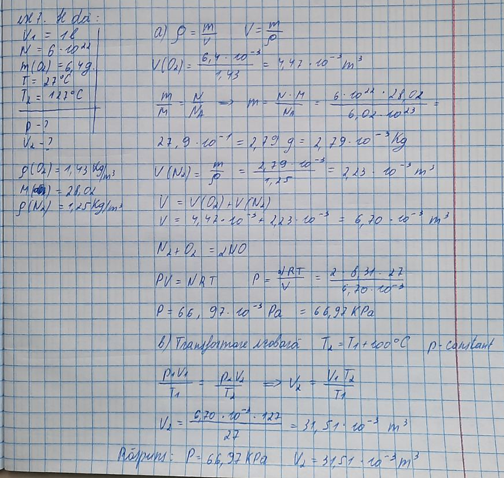 V1 = 1l
N = 6 · 10²²
m(O₂) = 6,4g
T = 27°C
T₂ = 127°C
p - ?
V₂ - ?
ρ(O₂) = 1,43 Kg/m³
= 28,02
ρ(N₂) = 1,25 Kg/m³
a) ρ = m/V V = m/ρ
V(O₂) = 6,4 · 10⁻³ / 1,43 = 4,47 · 10⁻³ m³
m/M = N/NA => m = N · M / NA = 6 · 10²² · 28,02 / 6,02 · 10²³ =
27,9 · 10⁻¹ = 2,79 g = 2,79 · 10⁻³ Kg
V(N₂) = m/ρ = 2,79 · 10⁻³ / 1,25 = 2,23 · 10⁻³ m³
V = V(O₂) + V(N₂)
V = 4,47 · 10⁻³ + 2,23 · 10⁻³ = 6,70 · 10⁻³ m³
N₂ + O₂ = 2NO
PV = NRT P = NRT/V = 2 · 8,31 · 27 / 6,70 · 10⁻³
P = 66,97 · 10⁻³ Pa = 66,97 KPa
b) Transformare izobară T₂ = T1 + 100°C p - constant
p1V1/T1 = p₂V₂/T₂ => V₂ = V1T₂/T1
V₂ = 6,70 · 10⁻³ · 127 / 27 = 31,51 · 10⁻³ m³
Răspuns: P = 66,97 KPa V₂ = 31,51 · 10⁻³ m³